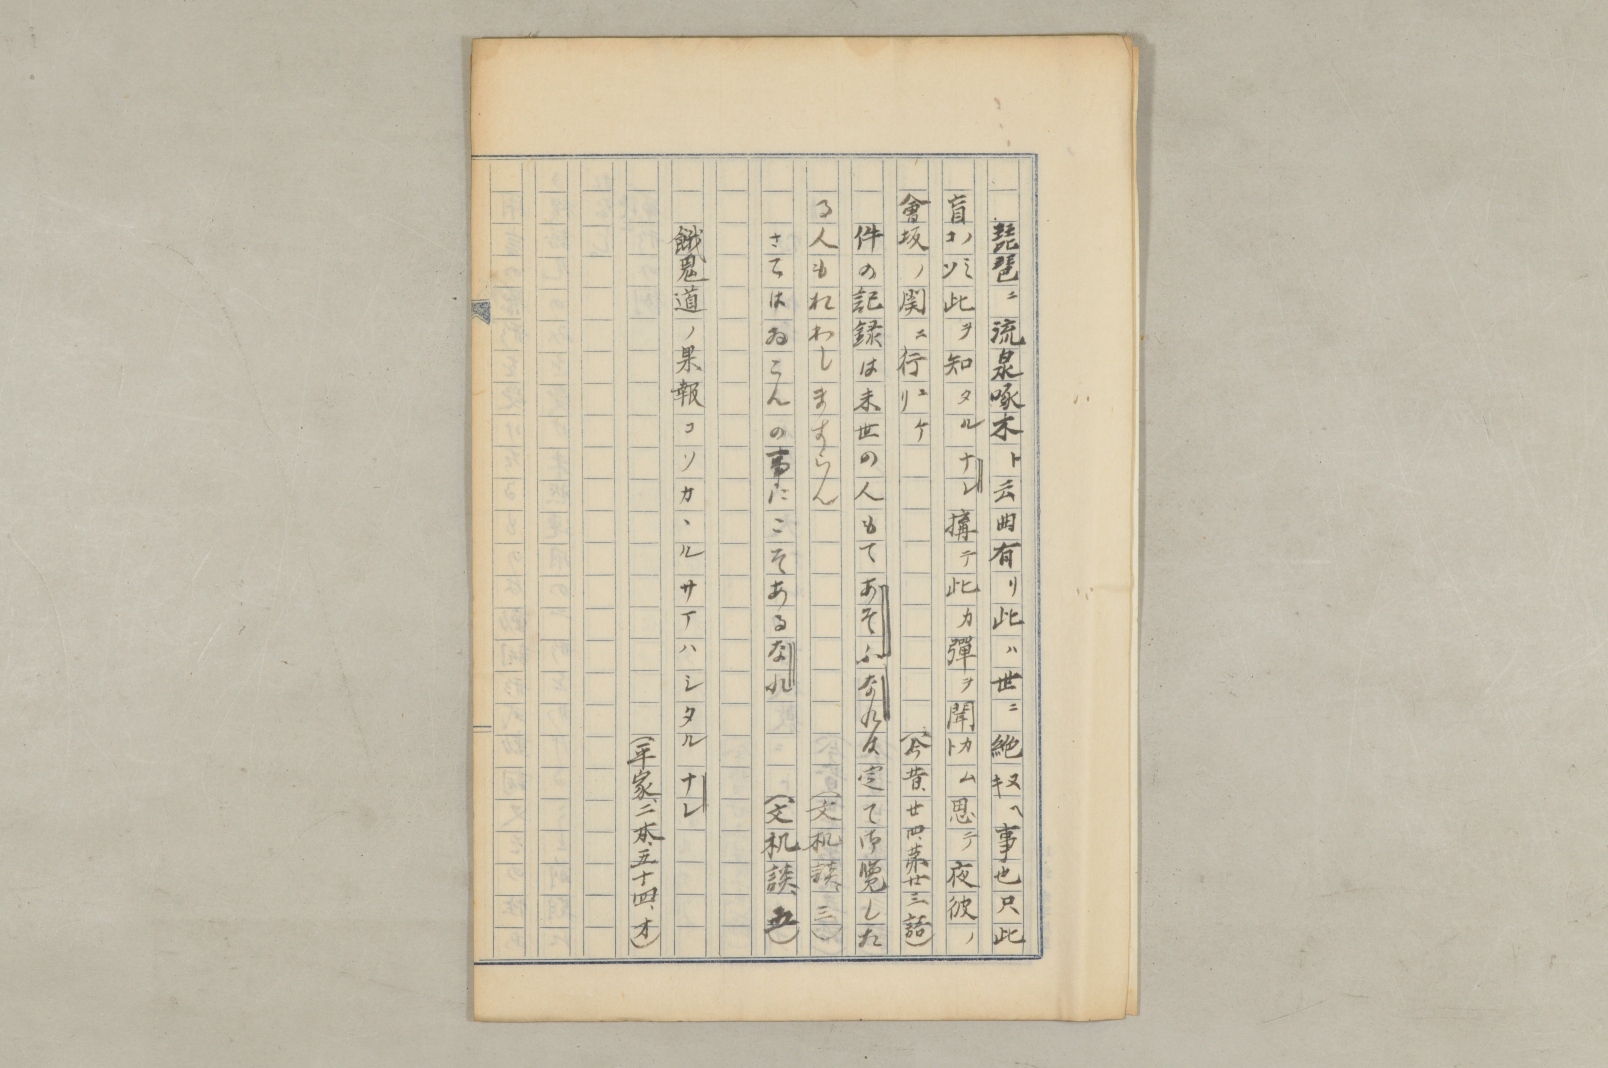 琵琶ニ流泉啄木ト云曲有リ此ハ世ニ絶ヌヘキ事也只此
盲ノミコソ此ヲ知タルナレ搆テ此カ彈ヲ聞カムト思テ夜彼ノ
會坂ノ関ニ行ニケリ (今昔廿四、第廿三語)
件の記録は末世の人もてあそふなれは定て御覧した
る人もれわしますらん (文机談、三)
さてはゐこんの事にこそあるなれ (文机談、五)
餓鬼道ノ果報コソカヽルサイハシタルナレ
(平家、二本、五十四、オ)